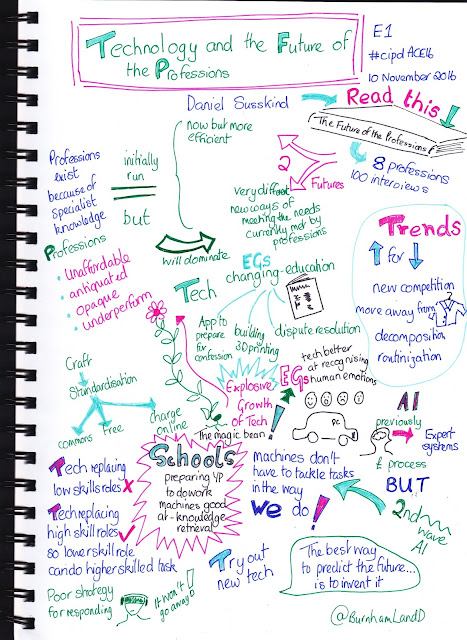 Technology and the Future of
the Professions
E1
#cipdACE16
10 November 2016
Daniel Susskind
Read this
The Future of the Professions
8 professions
100 interviews
now but more
efficient
2
Futures
very different
new ways of
meeting the needs
currently met by
professions
Professions
exist
because of
specialist
knowledge
initially
run
but
will dominate
Professions
• Unaffordable
• antiquated
• opaque
• underperform
Trends
for
new competition
move away from
decomposition
routinization
Tech
EGs
changing-education
App to
prepare
for
confession
building
3D printing
dispute resolution
Craft
Standardisation
commons
free
charge
online
Explosive
Growth
of Tech
The magic bean
EGs
tech better
at recognising
human emotions
AI
previously
Expert
systems
& process
BUT
2nd
wave
AI
Tech replacing
low skills roles X
Tech replacing
high skill roles
so lower skill role
can do higher skilled task
Poor strategy
for responding
It won't
go away!
Schools
preparing YP
to do work
machines good
at - knowledge
retrieval
Machines don't
have to tackle tasks
in the way
we do!
Try out
new tech
The best way
to predict the future...
is to invent it
@BurnhamLandD